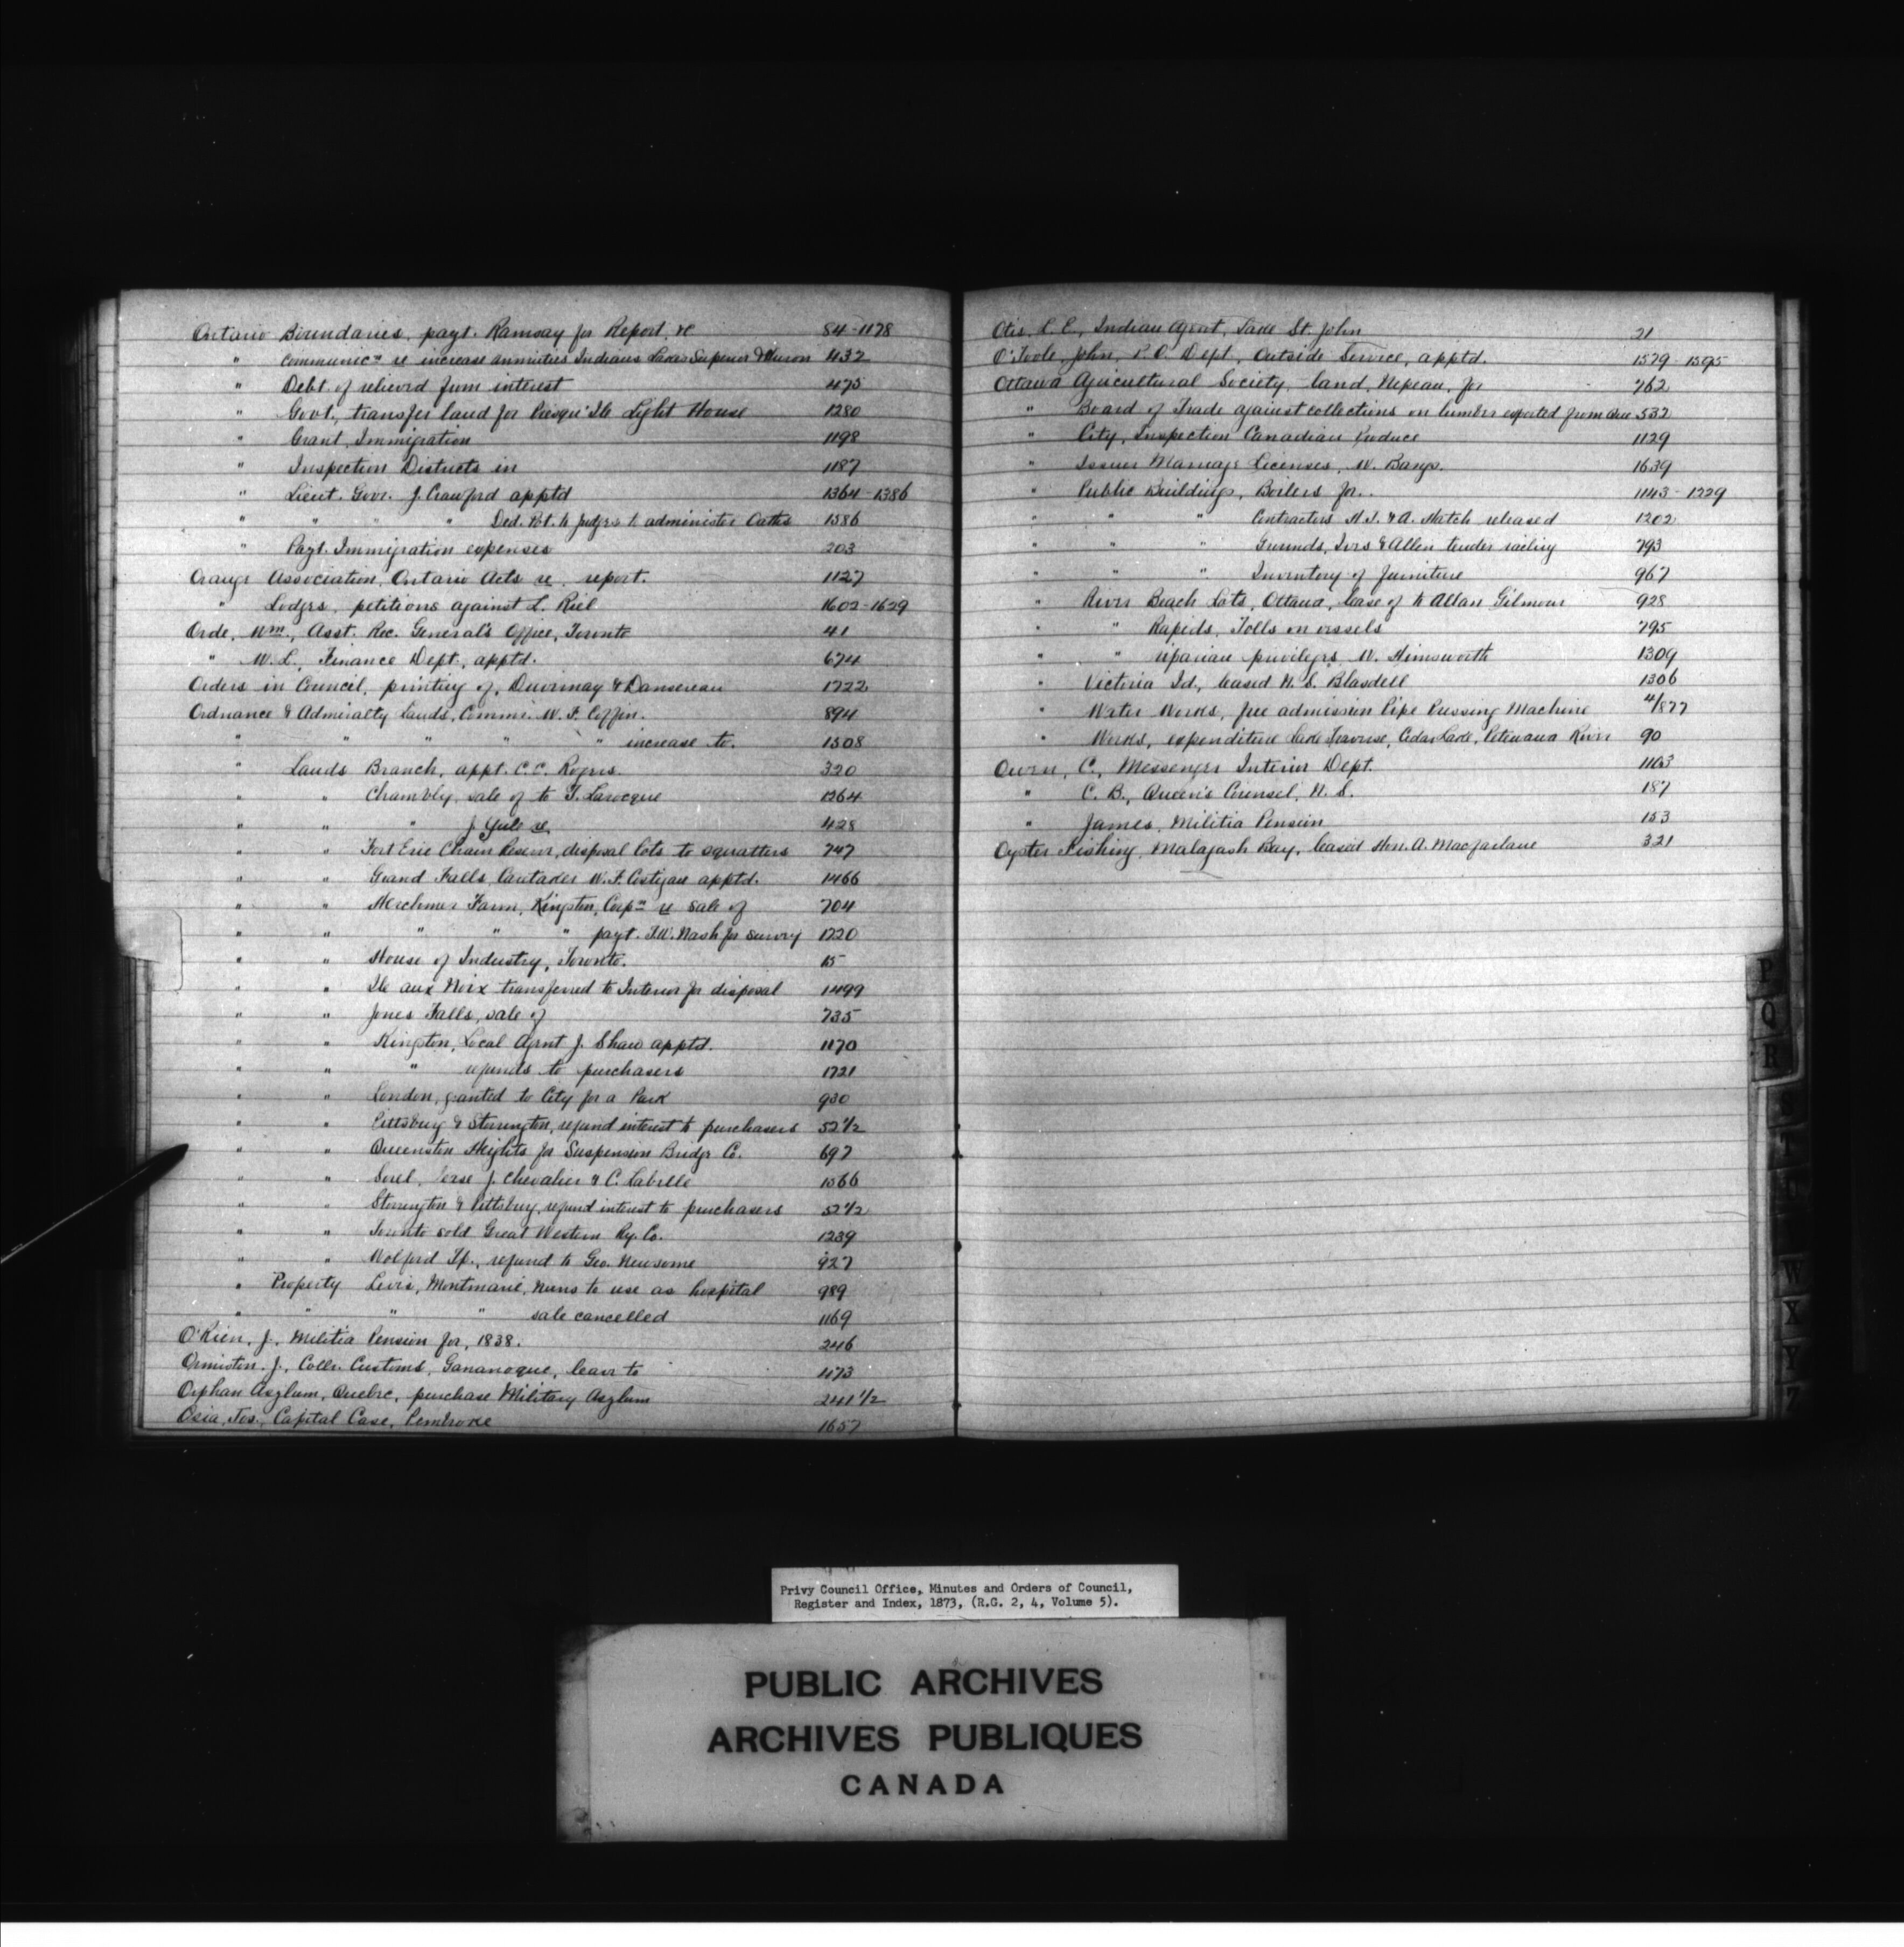 Ontario Boundaries, payt. Ramsay for Report, &c 84-1178
" Communicn re increase annuities Indians Lakes Superior & Huron 432
" Debt of relieved from interest 475
" Govt., transfer land for Presqu'Ile Light House 1280
" Grant, Immigration 1198
" Inspection Districts in 1187
" Lieut. Govr. J. Crawford apptd 1364-1386
" " " " Ded. Pot. to Judges to administer Oaths 1586
" Payt. Immigration expenses 203
Orange Association, Ontario Acts re report. 1127
" Lodges, petitions against L. Riel 1602-1629
Orde, Wm., Asst. Rec. General's Office, Toronto 41
" W. L., Finance Dept., apptd. 674
Orders in Council, printing of, Duvernay & Dansereau 1722
Ordnance & Admiralty lands, Commr. W. F. Coffin. 894
" " " " " increase to. 1508
" Lands Branch, appt. C. C. Rogers. 320
" " Chambly, sale of to T. Larocque 1264
" " " J. Yule re 428
" " Fort Erie Chain Reserve, disposal lots to squatters 747
" " Grand Falls, Caretaker W. F. Costigan apptd. 1466
" " Herchmer Farm, Kingston, Corpn re sale of 704
" " " " " payt. T. W. Nash for survey 1720
" " House of Industry, Toronto. 15
" " Ile aux Noix transferred to Interior for disposal 1499
" " Jones Falls, sale of 735
" " Kingston, Local Agent J. Shaw apptd. 1170
" " " refunds to purchasers 1721
" " London, granted to City for a Park 930
" " Pittsburg & Storrington, refund interest to purchasers 52 1/2
" " Queenston Heights for Suspension Bridge Co. 697
" " Sorel, lease J. Chevalier & C. Labelle 1566
" " Storrington & Pittsburg, refund interest to purchasers 52 1/2
" " Toronto sold Great Western Ry. Co. 1239
" " Wolford Tp., refund to Geo. Newsome 927
" Property Levis, Montmarie, Nuns to use as hospital 989
" " " " sale cancelled 1169
O'Rien, J., Militia Pension for, 1838. 246
Ormiston, J., Collr. Customs, Gananoque, leave to 1173
Orphan Asylum, Quebec, purchase Military Asylum 241 1/2
Osia, Jos., Capital Case, Pembroke 1657
Otis, L. E., Indian Agent, Lake St. John 21
O'Toole, John, P. O. Dept., Outside Service, apptd. 1579-1595
Ottawa Agricultural Society, land, Nepean, for 762
" Board of Trade against collections on lumber exported from 532
" City, Inspection Canadian Produce 1129
" Issuer Marriage Licenses, W. 1639
" Public Buildings, Boilers for. 1143-1229
" " " Contractors H. J. & A. Hatch released 1202
" " " Grounds, Ives & Allen tender railing 793
" " " Inventory of furniture 967
" River Beach Lots, Ottawa, lease of to Allan Gilmour 928
" " Rapids, Tolls on vessels 795
" " riparian privileges W. Himsworth 1309
" Victoria Id., leased N. S. Blasdell 1306
" Water Works, free admission Pipe Pressing Machine 4/877
" Works, expenditure Lake Traverse, Cedar Lake, Petewawa River 90
Owen, C., Messenger Interior Dept. 1163
" C. B., Queen's Counsel, N. S. 187
" James, Militia Pension 153
Oyster Fishing, Malagash Bay, leased Hon. A. Macfarlane 321
P
Q
R
S
T
W
X
Y
Z
Privy Council Office, Minutes and Orders of Council,
Register and Index, 1873, (R.G. 2, 4, Volume 5).
PUBLIC ARCHIVES
ARCHIVES PUBLIQUES
CANADA